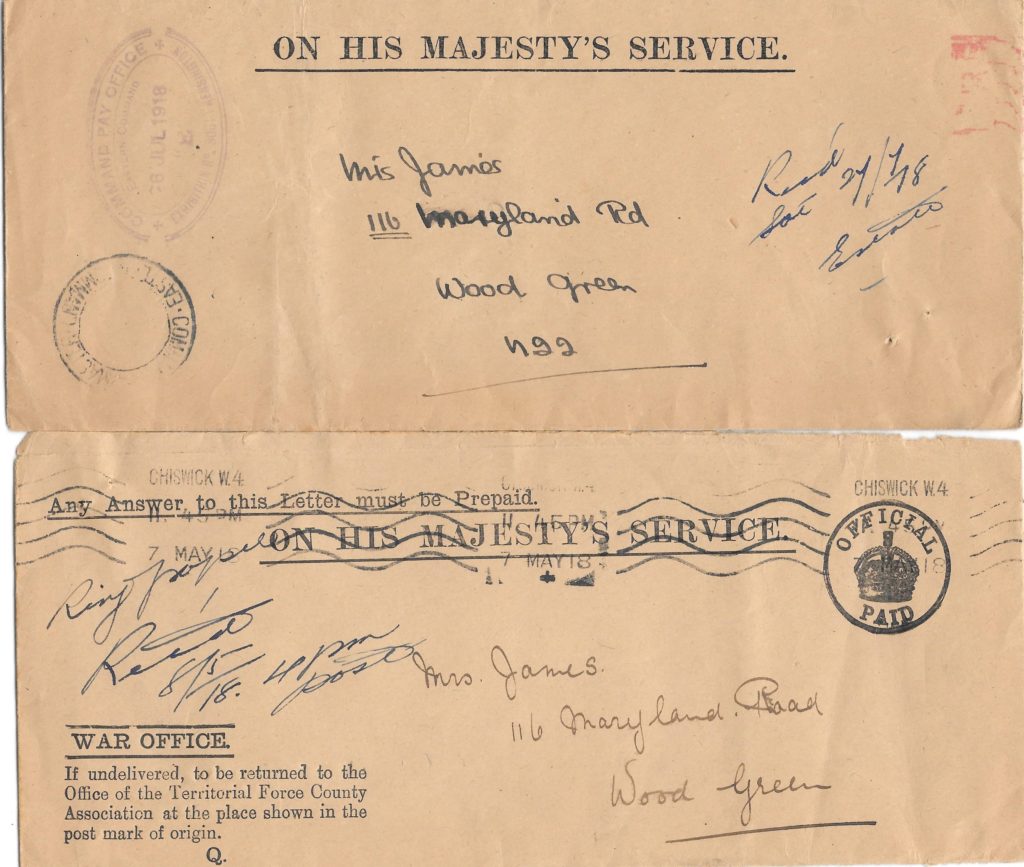 ON HIS MAJESTY'S SERVICE.
COMMAND PAY OFFICE
EASTERN COMMAND
26 JUL 1918
Mrs James
116 Maryland Rd
Wood Green
N22
Recd 27/7/18
Sat
EAST. COM
Any Answer to this Letter must be Prepaid.
ON HIS MAJESTY'S SERVICE.
CHISWICK W.4
11. 45 PM
7 MAY 18
CHISWICK W.4
11. 45 PM
7 MAY 18
CHISWICK W.4
OFFICIAL
PAID
Ring
8/5/18. 4 pm
post
Mrs. James.
116 Maryland. Road
Wood Green
WAR OFFICE.
If undelivered, to be returned to the
Office of the Territorial Force County
Association at the place shown in the
post mark of origin.
Q.